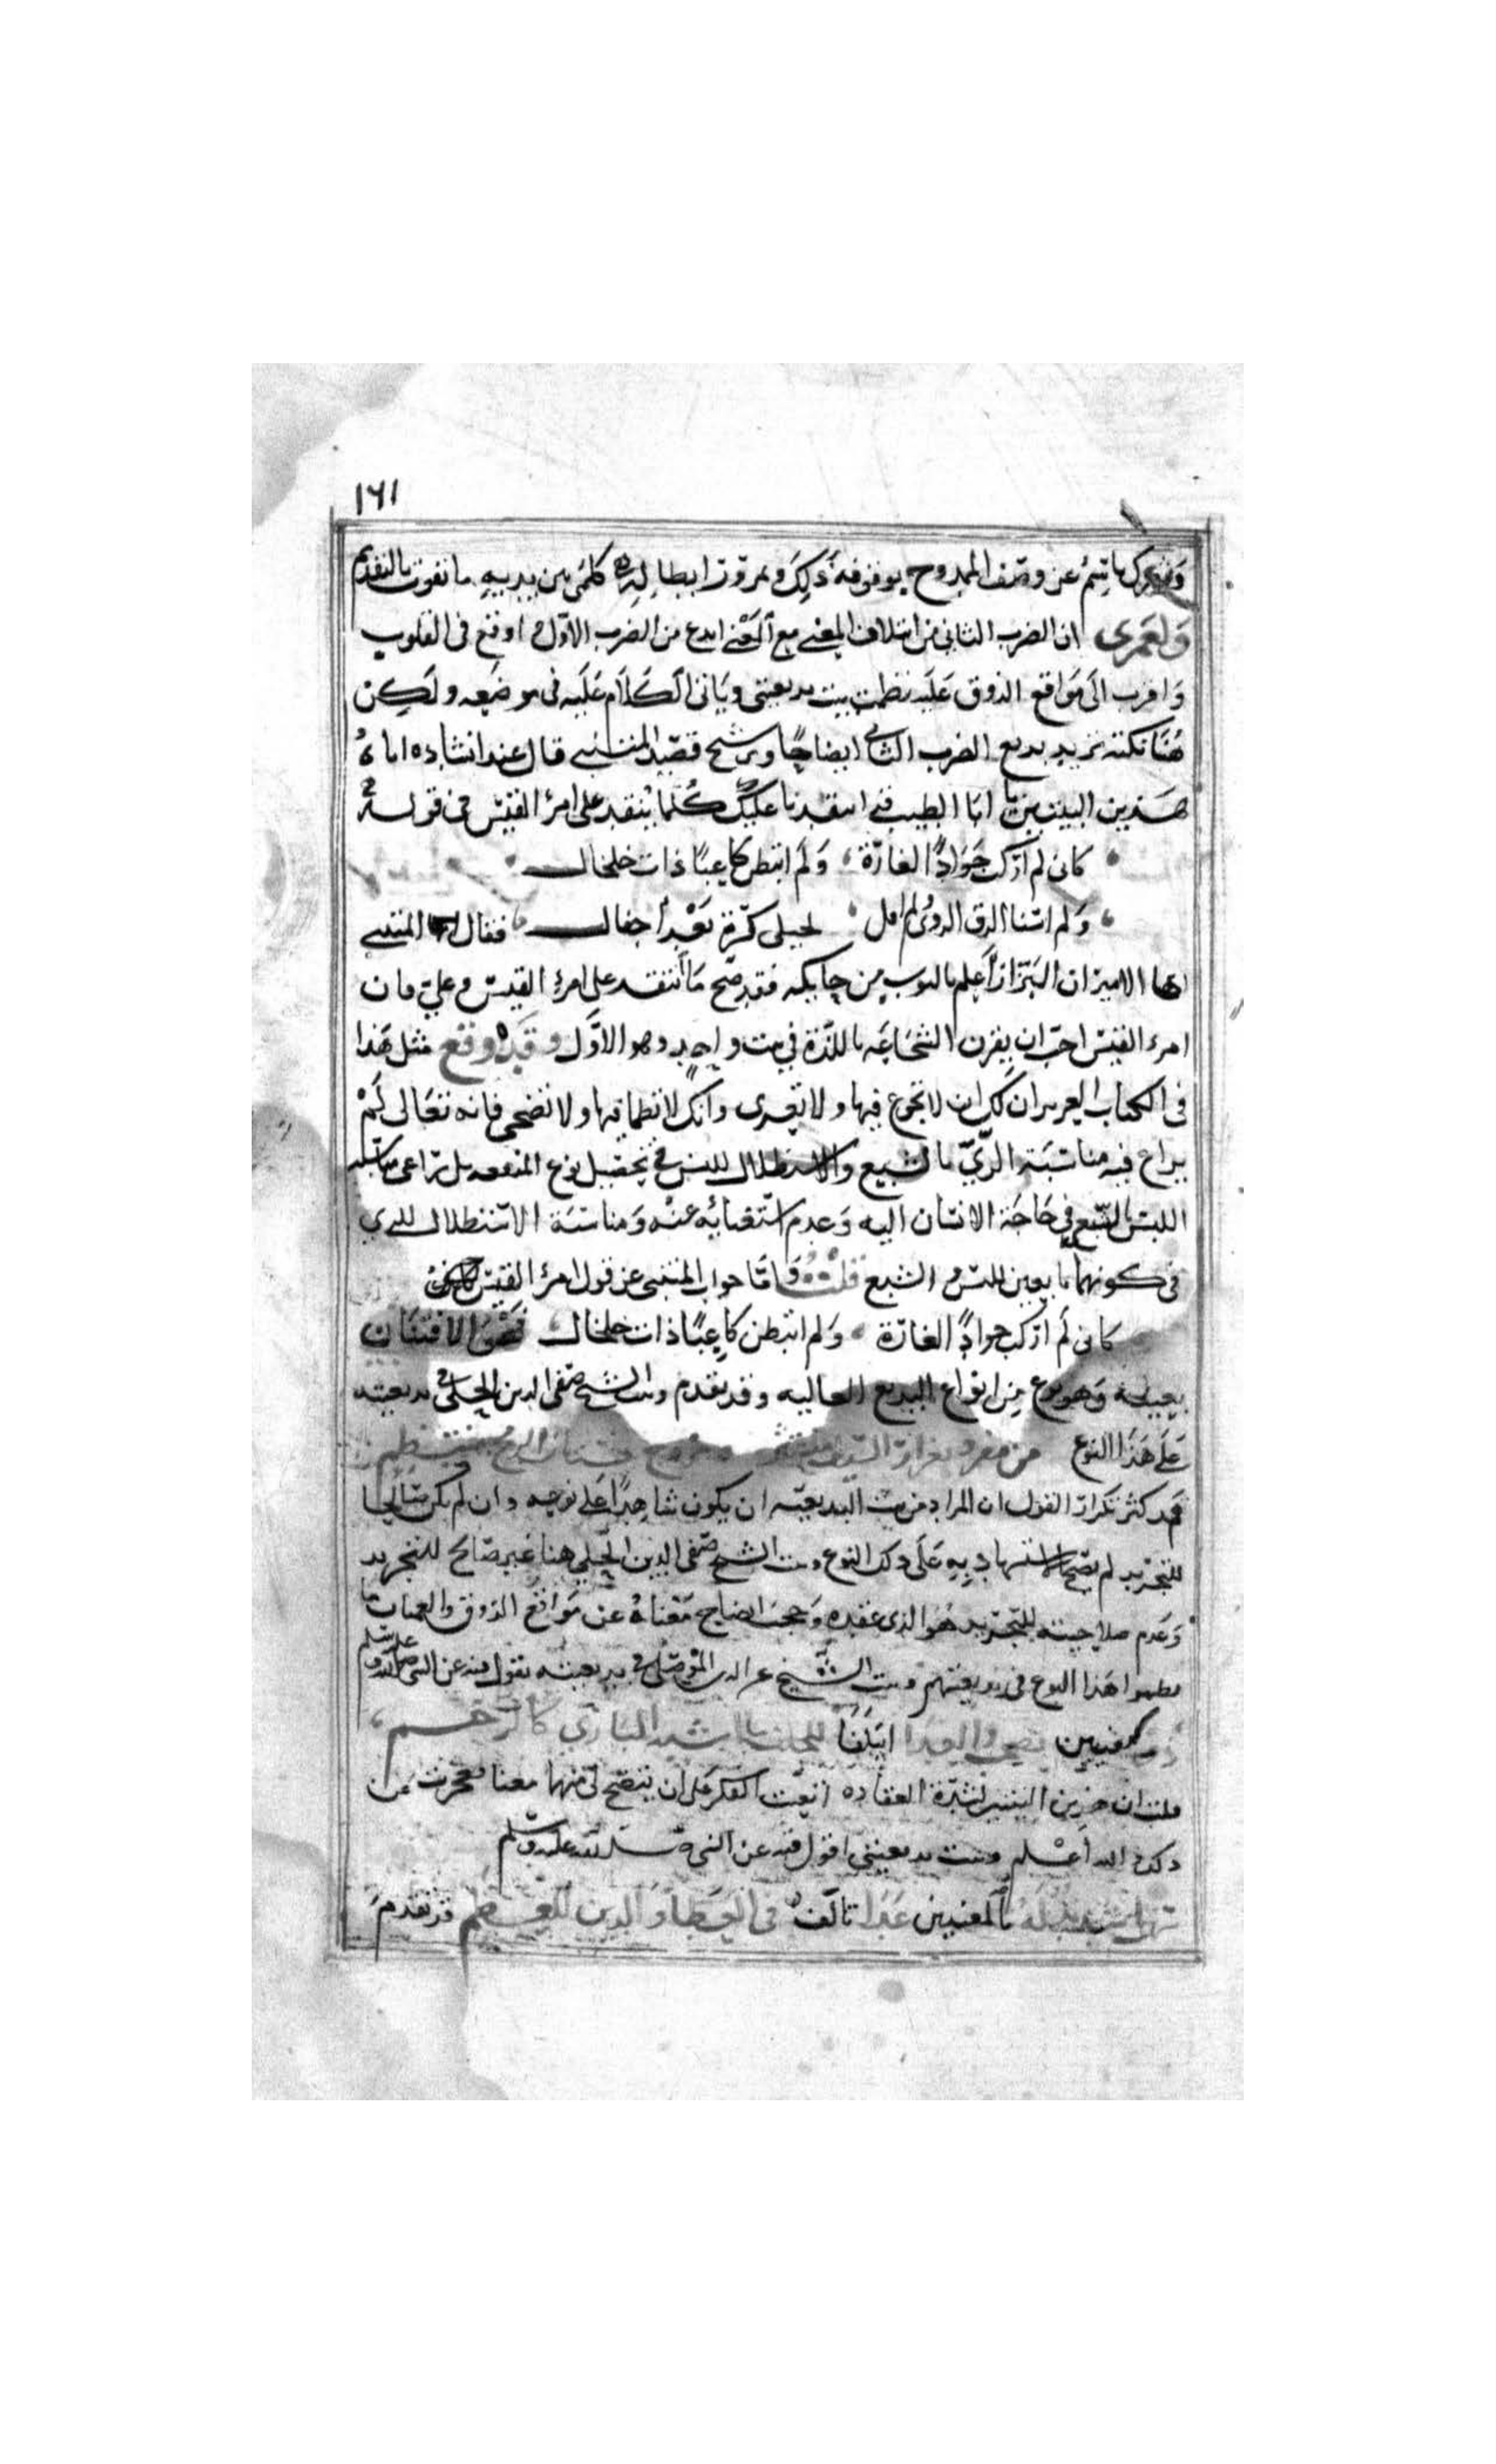 ١٦١
باسم عن وصف الممدوح بوقوفه ذلك ومرور ابطاله كلمى بين يديه ما تفوت بالتقديم
وَلعَمرى ان الضرب الثانى من ائتلاف المعنى مع المعنى ابدع من الضرب الاول واوقع فى القلوب
وَاقرب الَى مَواقع الذوق عَلَيه نظمت بيت بديعيتى وَياتى الكَلاَم عَلَيه فى موضعه ولَكِن
هُنَا نكتة تزيد بديع الضرب الثانى ايضاحًا وترشيح قصيد المتنبى قال عند انشاده اياهُ
هَذين البيتين يا ابَا الطيب انتقدنا عليك كُلما يُنتقد على امرئ القيس فى قوله
كانى لم اركب جَوَادًا لغارة وَلَم اتبطن كاعبًا ذات خلخال
وَلم اسبا الزق الروى ولم اقل لخيلى كرّى كرة بَعْد اجفال فقال المتنبى
ايها الامير ان البزّاز اَعلم بالثوب من حايكه فقد صَح مَا انتقد على امرئ القيس وعلىّ فان
امرء القيس احبّ ان يقرن الشجَاعَه باللذة فى بيت واحدٍ وهو الاوّل وقَدْ وقع مثل هَذا
فى الكتاب العزيز ان لك ان لا تجوع فيها ولا تعرى وانك لا تظما فيها ولا تضحى فانه تعَالى لَمْ
يراع فيه مناسَبَة الرّىّ بالشبع والاستظلال للبس فى تحصيل نوع المنفعه بل راعى مناسبة
اللبس للشبع فى حَاجَة الانسَان اليه وَعدم استغنائه عنه وَمناسَبَة الاستظلال للرى
فى كونهما تابعين للبس والشبع قلتُ وَامّا جواب المتنبى عن قول امرئ القيس
كانى لَم اركب جوادًا لغارة وَلم اتبطن كاعبًا ذات خلخال فَهُوَ الافتنان
بعينه وَهو نوع مِن انواع البديع العاليه وقد تقدم وبيت الشيخ صَفى الدين الحلى فى بديعيته
عَلَى هَذا النوع من مفرد بغرار السيف منتثر ومزوج بسنان الرمح منتظم
قَد كثر تكرار القول ان المراد من بيت البديعيّه ان يكون شاهِدًا عَلى نوعه وان لم يكن صَالحًا
للتجريد لم يصحّ الاستشهاد بِهِ عَلَى ذلك النوع وبيت الشيخ صَفى الدين الحِلى هنا غير صَالح للتجريد
وَعَدم صلاحيته للتجريد هُوَ الذى عقده وَحجب ايضاح مَعْنَاهُ عن مَواقع الذوق والعميان مَا
نظموا هَذا النوع فى بديعيتهم وبيت الشيخ عز الدين المَوصلى فى بديعيته يقول فيه عن النبى صلى الله عليه وسلم
المعنيين ائتلفا للخلق
قلت ان هذين البيتين لشدّة العقاده اتعبت الفكر عَلى ان يتضح لى منهما معنا فعجزت عَن
ذلك والله اعْلم وبيت بديعيتى اقول فيه عن النبى صلى الله عليه وسلم
بالمعنيين غَدَا تالّف فى العَطا وَالدين للعِظم قد تقدمَ